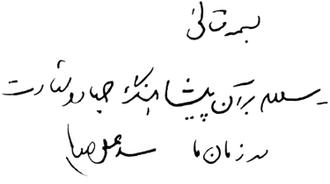 بسمه تعالی
سلام بر آن پیشاهنگ جهاد و شهادت
در زمان ما سید علی خامنه‌ای